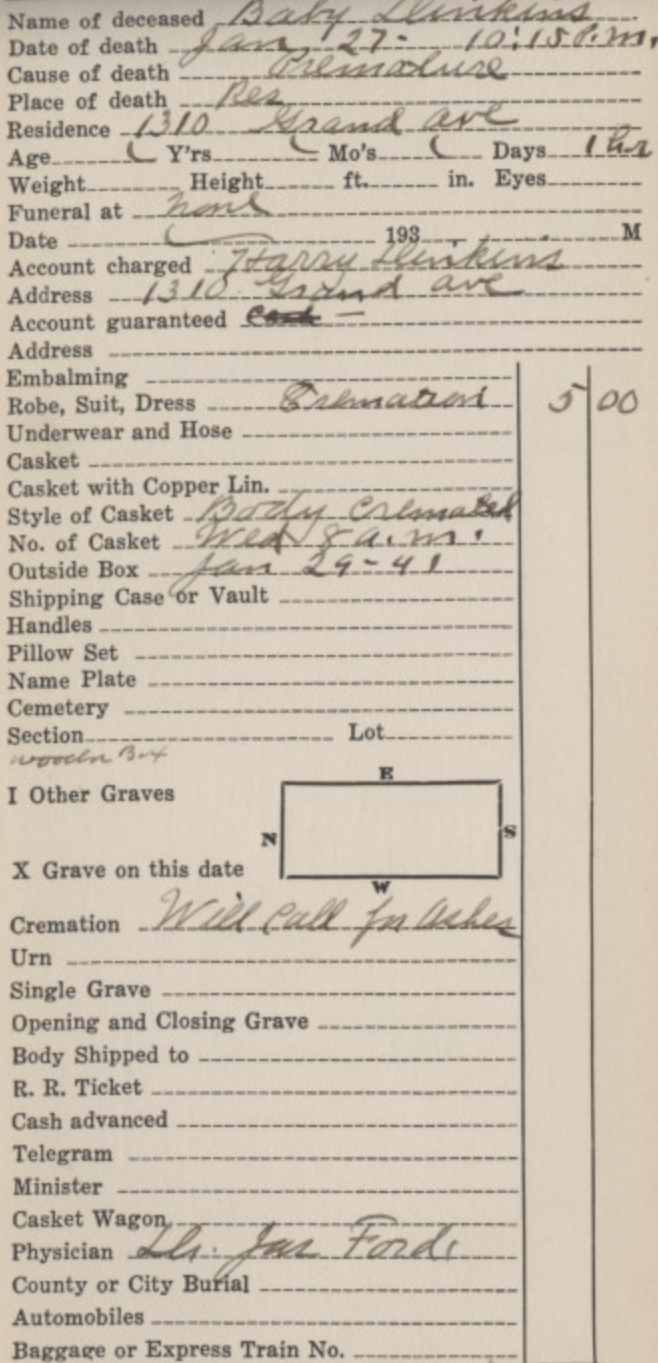 Name of deceased Baby Dinkins
Date of death Jan 27- 10:15 P.m.
Cause of death Premature
Place of death Res
Residence 1310 Grand ave
Age Y'rs Mo's Days 1 hr
Weight Height ft. in. Eyes
Funeral at none
Date 193 M
Account charged Harry Dinkins
Address 1310 Grand ave
Account guaranteed cash -
Address
Embalming
Robe, Suit, Dress Cremation 5 00
Underwear and Hose
Casket
Casket with Copper Lin.
Style of Casket Body Cremated
No. of Casket Wed 8 a.m.
Outside Box Jan 29-41
Shipping Case or Vault
Handles
Pillow Set
Name Plate
Cemetery
Section Lot
wooden Box
E
I Other Graves
N S
X Grave on this date
W
Cremation Will Call for Ashes
Urn
Single Grave
Opening and Closing Grave
Body Shipped to
R. R. Ticket
Cash advanced
Telegram
Minister
Casket Wagon
Physician Jas Ford
County or City Burial
Automobiles
Baggage or Express Train No.